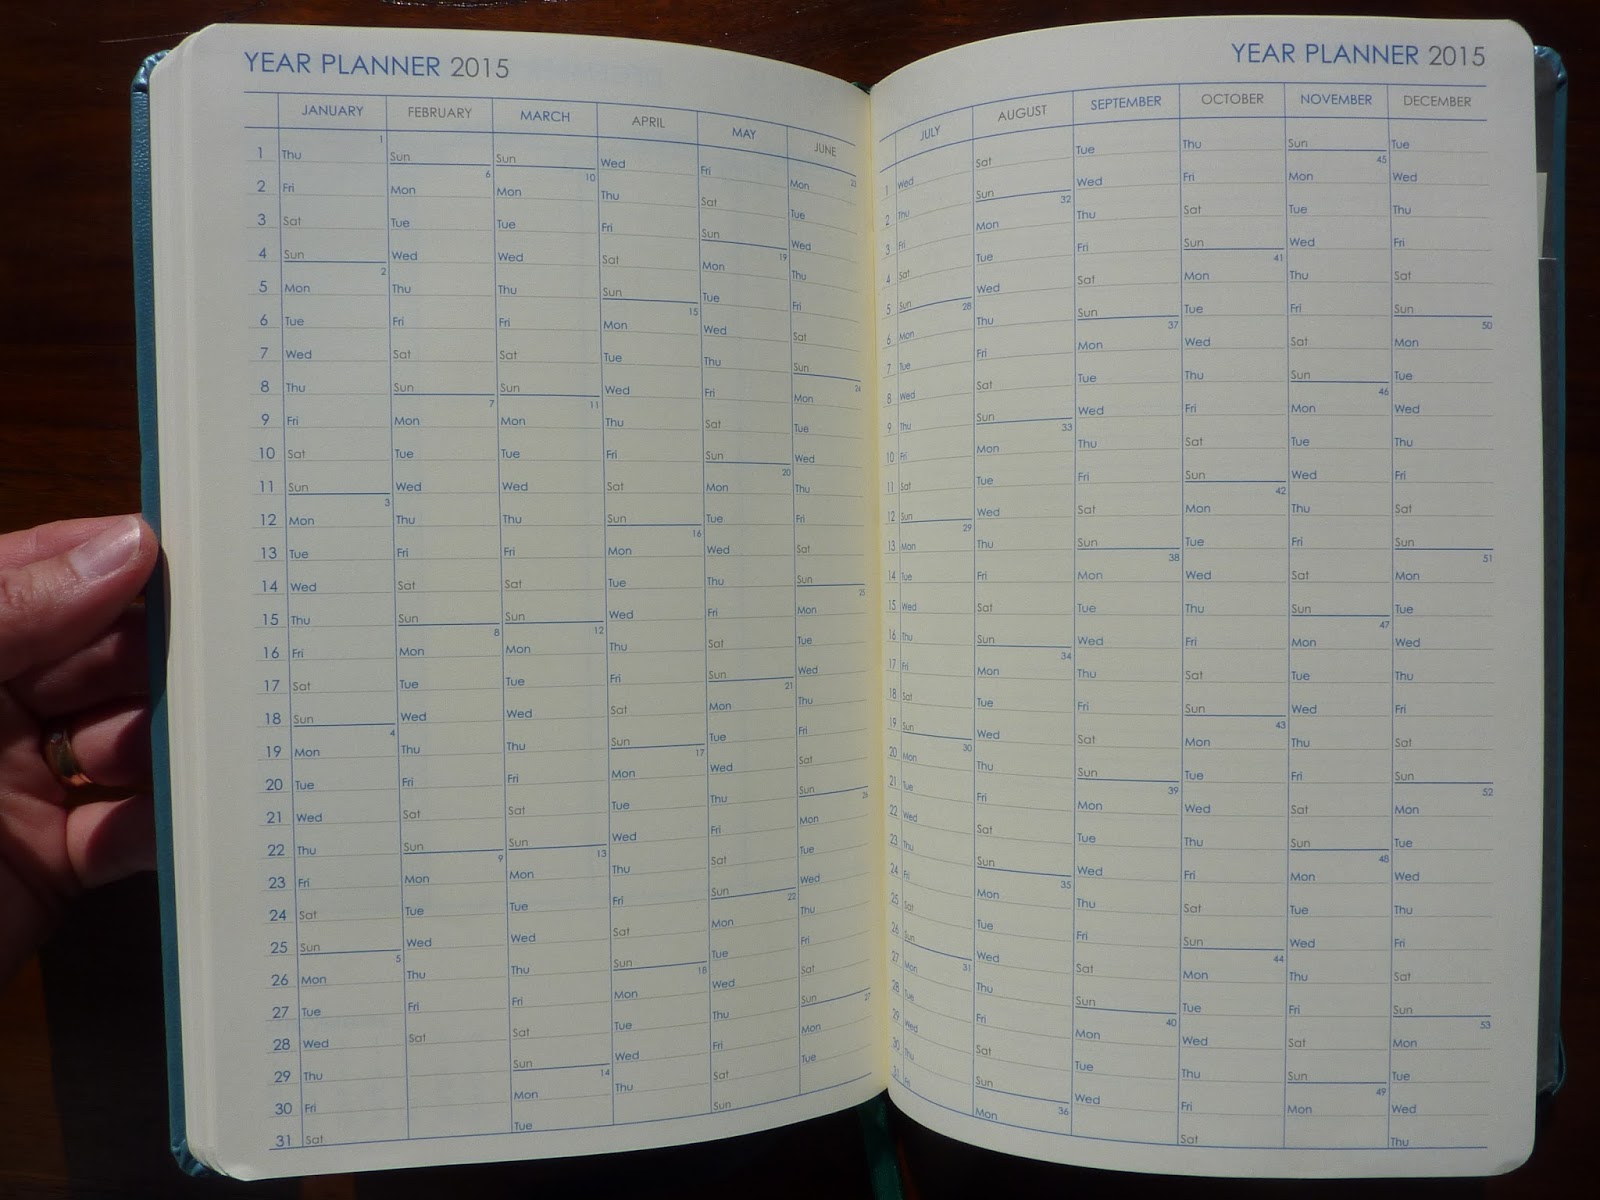 YEAR PLANNER 2015
JANUARY FEBRUARY MARCH APRIL MAY JUNE
1 Thu 1 Sun Sun Wed Fri Mon 23
2 Fri Mon 6 Mon 10 Thu Sat Tue
3 Sat Tue Tue Fri Sun Wed
4 Sun Wed Wed Sat Mon 19 Thu
5 Mon 2 Thu Thu Sun Tue Fri
6 Tue Fri Fri Mon 15 Wed Sat
7 Wed Sat Sat Tue Thu Sun
8 Thu Sun Sun Wed Fri Mon 24
9 Fri Mon 7 Mon 11 Thu Sat Tue
10 Sat Tue Tue Fri Sun Wed
11 Sun Wed Wed Sat Mon 20 Thu
12 Mon 3 Thu Thu Sun Tue Fri
13 Tue Fri Fri Mon 16 Wed Sat
14 Wed Sat Sat Tue Thu Sun
15 Thu Sun Sun Wed Fri Mon 25
16 Fri Mon 8 Mon 12 Thu Sat Tue
17 Sat Tue Tue Fri Sun Wed
18 Sun Wed Wed Sat Mon 21 Thu
19 Mon 4 Thu Thu Sun Tue Fri
20 Tue Fri Fri Mon 17 Wed Sat
21 Wed Sat Sat Tue Thu Sun
22 Thu Sun Sun Wed Fri Mon 26
23 Fri Mon 9 Mon 13 Thu Sat Tue
24 Sat Tue Tue Fri Sun Wed
25 Sun Wed Wed Sat Mon 22 Thu
26 Mon 5 Thu Thu Sun Tue Fri
27 Tue Fri Fri Mon 18 Wed Sat
28 Wed Sat Sat Tue Thu Sun
29 Thu Sun Wed Fri Mon 27
30 Fri Mon 14 Thu Sat Tue
31 Sat Tue Sun
YEAR PLANNER 2015
JULY AUGUST SEPTEMBER OCTOBER NOVEMBER DECEMBER
1 Wed Sat Tue Thu Sun Tue
2 Thu Sun Wed Fri Mon 45 Wed
3 Fri Mon 32 Thu Sat Tue Thu
4 Sat Tue Fri Sun Wed Fri
5 Sun Wed Sat Mon 41 Thu Sat
6 Mon 28 Thu Sun Tue Fri Sun
7 Tue Fri Mon 37 Wed Sat Mon 50
8 Wed Sat Tue Thu Sun Tue
9 Thu Sun Wed Fri Mon 46 Wed
10 Fri Mon 33 Thu Sat Tue Thu
11 Sat Tue Fri Sun Wed Fri
12 Sun Wed Sat Mon 42 Thu Sat
13 Mon 29 Thu Sun Tue Fri Sun
14 Tue Fri Mon 38 Wed Sat Mon 51
15 Wed Sat Tue Thu Sun Tue
16 Thu Sun Wed Fri Mon 47 Wed
17 Fri Mon 34 Thu Sat Tue Thu
18 Sat Tue Fri Sun Wed Fri
19 Sun Wed Sat Mon 43 Thu Sat
20 Mon 30 Thu Sun Tue Fri Sun
21 Tue Fri Mon 39 Wed Sat Mon 52
22 Wed Sat Tue Thu Sun Tue
23 Thu Sun Wed Fri Mon 48 Wed
24 Fri Mon 35 Thu Sat Tue Thu
25 Sat Tue Fri Sun Wed Fri
26 Sun Wed Sat Mon 44 Thu Sat
27 Mon 31 Thu Sun Tue Fri Sun
28 Tue Fri Mon 40 Wed Sat Mon 53
29 Wed Sat Tue Thu Sun Tue
30 Thu Sun Wed Fri Mon 49 Wed
31 Fri Mon 36 Sat Thu